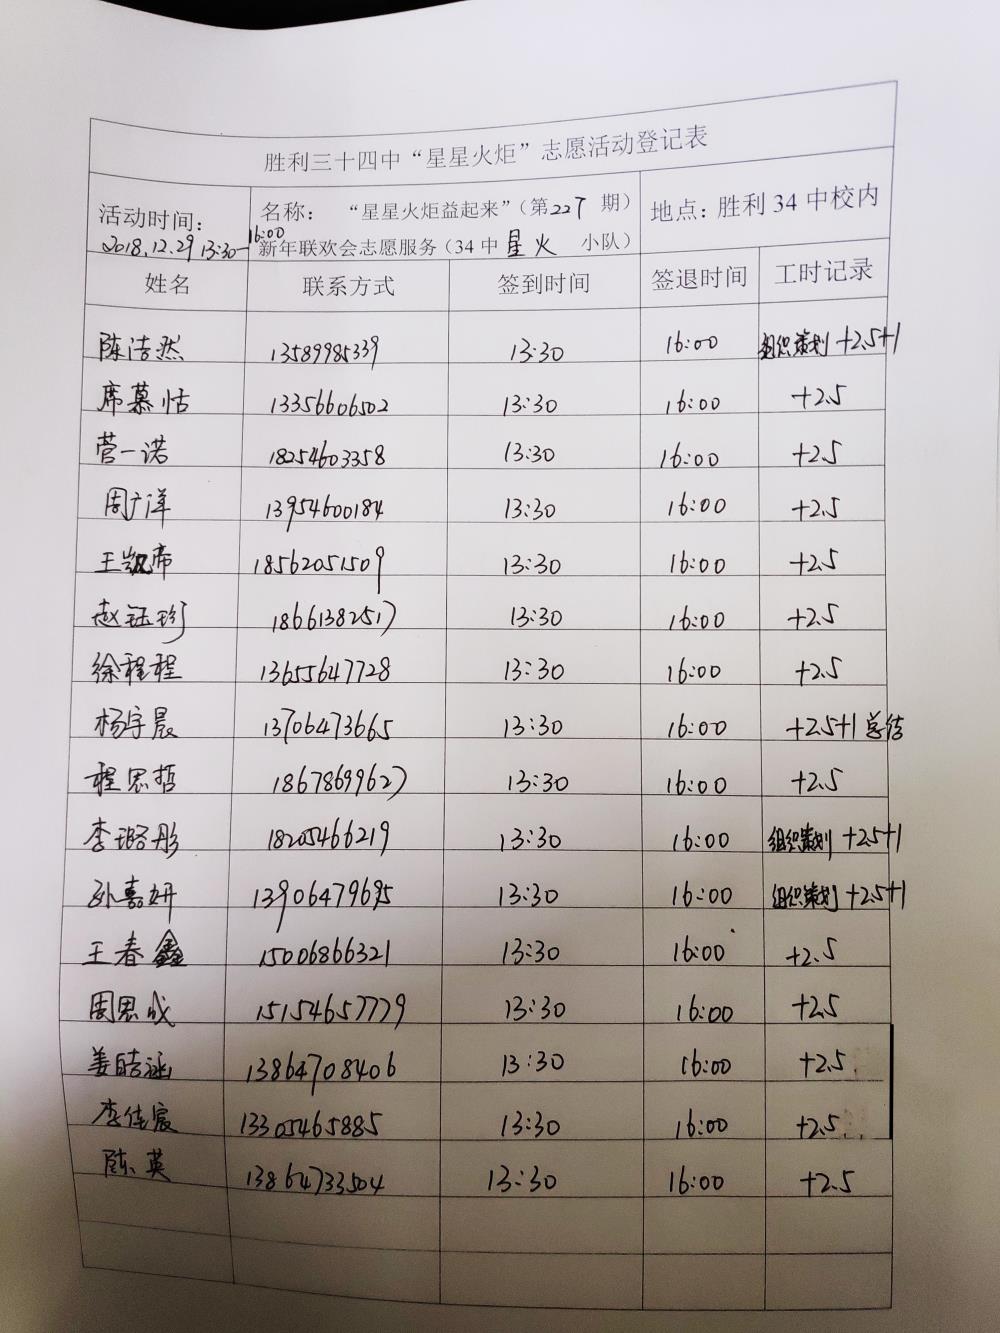 胜利三十四中“星星火炬”志愿活动登记表
活动时间: 2018.12.29 13:30-16:00
名称: “星星火炬益起来”(第227期)
新年联欢会志愿服务(34中星火 小队)
地点: 胜利34中校内
姓名 联系方式 签到时间 签退时间 工时记录
陈浩然 13589985339 13:30 16:00 组织策划 +2.5+1
席慕恬 13356606502 13:30 16:00 +2.5
菅一诺 18254603358 13:30 16:00 +2.5
周广洋 13954600184 13:30 16:00 +2.5
王凯帝 18562051509 13:30 16:00 +2.5
赵钰珍 18661382517 13:30 16:00 +2.5
徐程程 13655647728 13:30 16:00 +2.5
杨宇晨 13706473665 13:30 16:00 +2.5+1 总结
程思哲 18678699627 13:30 16:00 +2.5
李璐彤 18205466219 13:30 16:00 组织策划 +2.5+1
孙嘉妍 13906479695 13:30 16:00 组织策划 +2.5+1
王春鑫 15006866321 13:30 16:00 +2.5
周思成 15154657779 13:30 16:00 +2.5
姜皓涵 13864708406 13:30 16:00 +2.5
李佳宸 13305465885 13:30 16:00 +2.5
陈英 13864733504 13:30 16:00 +2.5